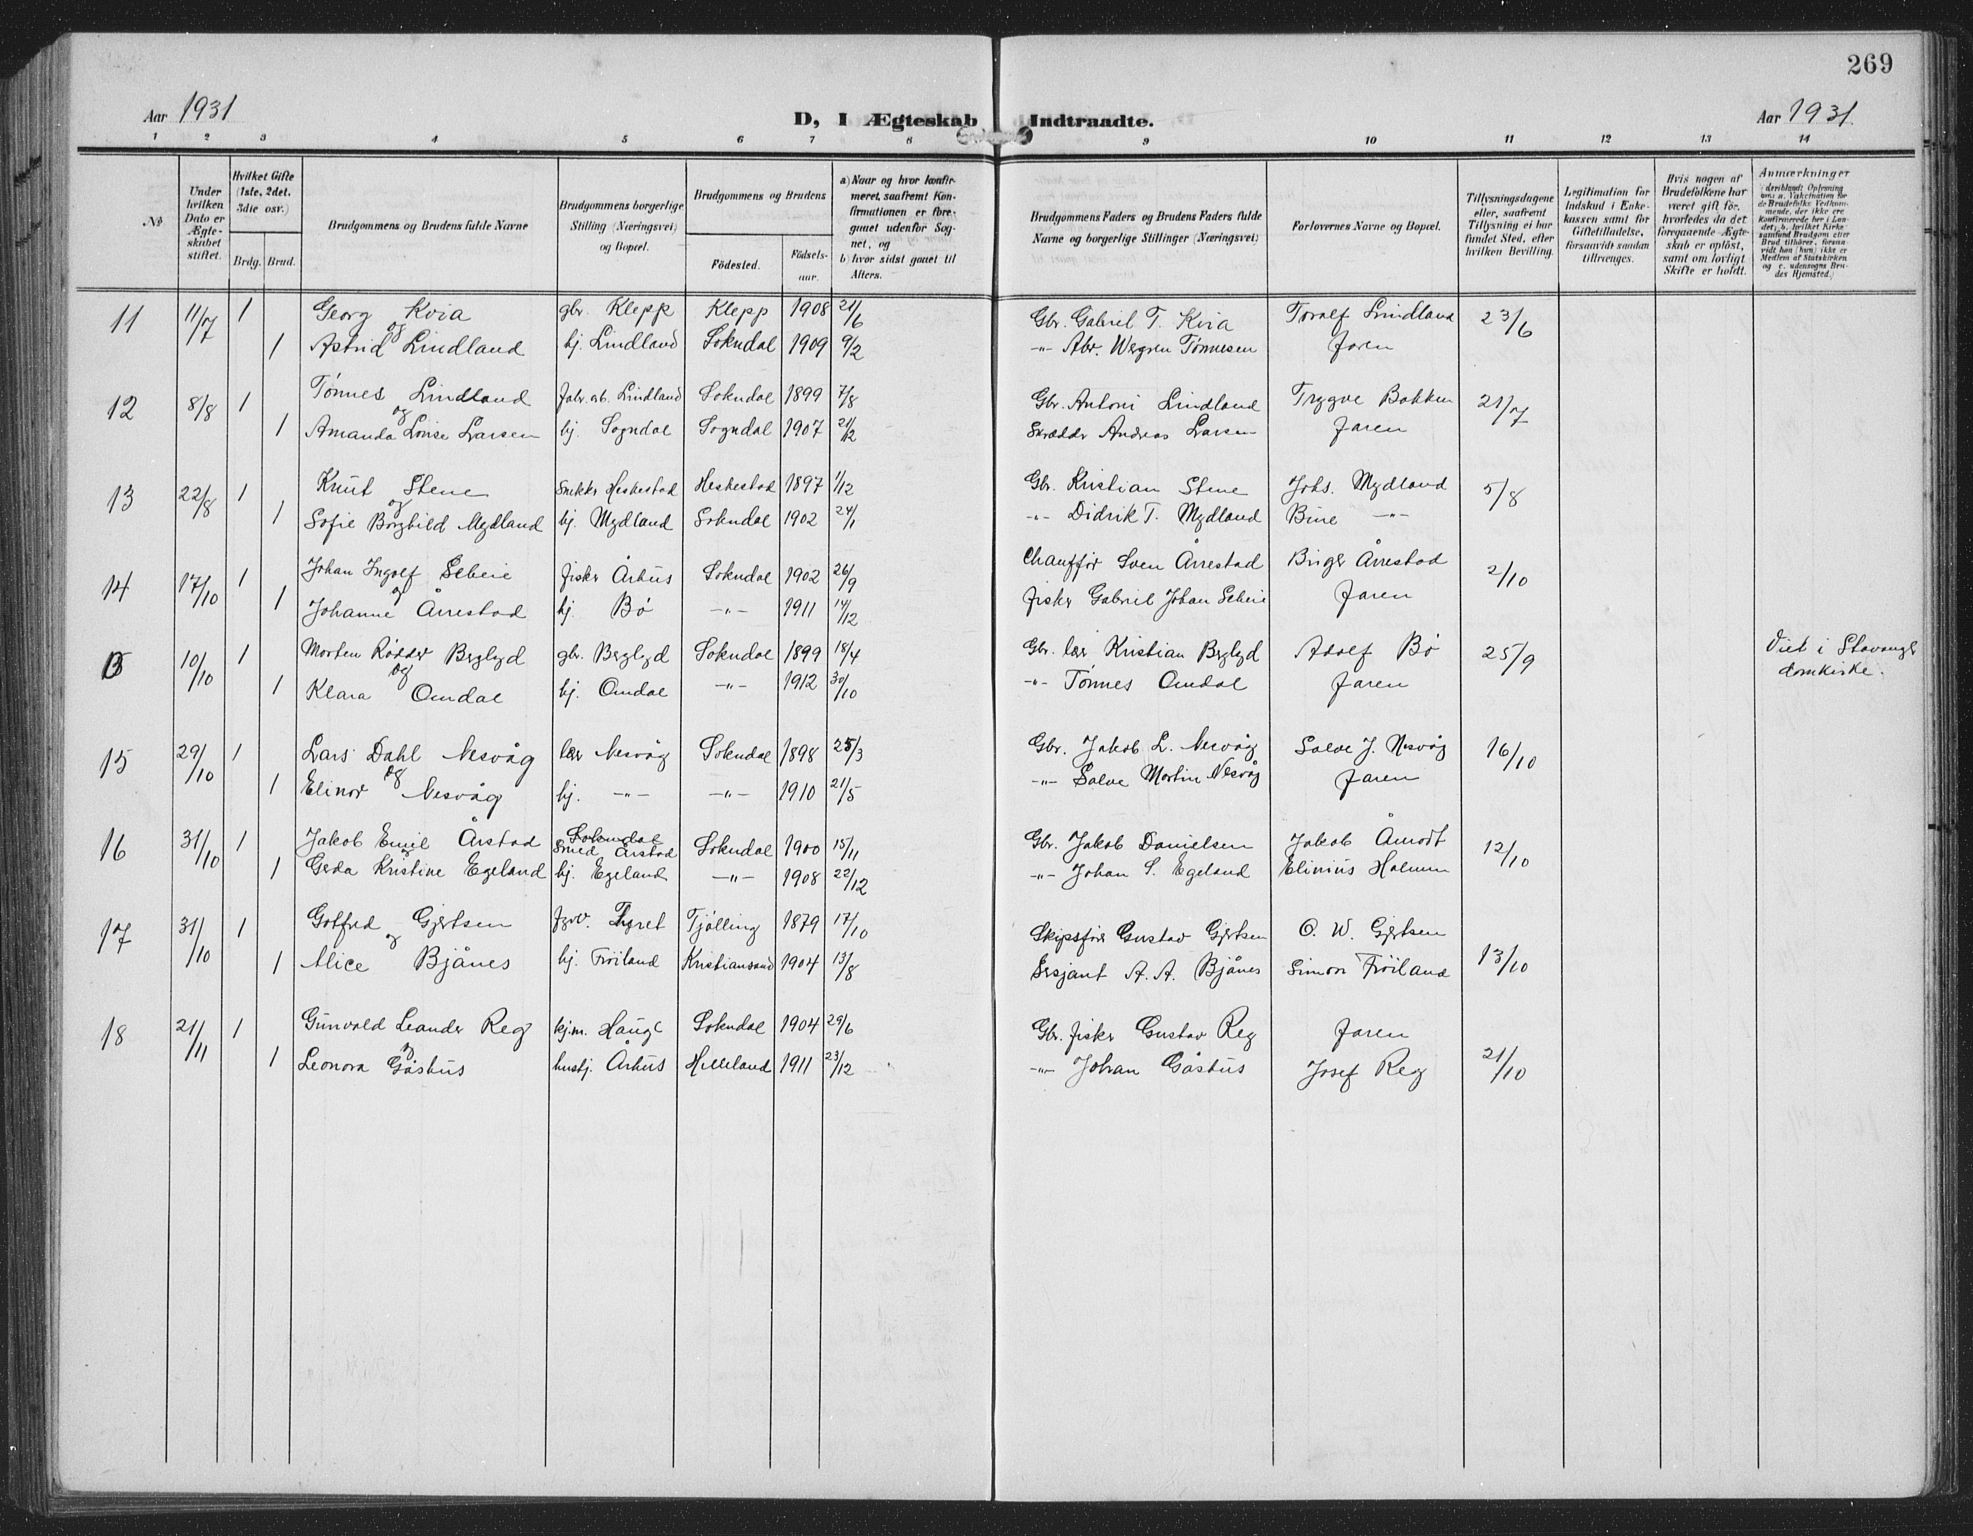 269
Aar 1931
D, I Ægteskab Indtraadte.
Aar 1931.
1 2 3 4 5 6 7 8 9 10 11 12 13 14
№
Under hvilken Dato er Ægteskabet stiftet.
Hvilket Gifte (1ste, 2det. 3die osv.)
Brdg. Brud.
Brudgommens og Brudens fulde Navne
Brudgommens borgerlige Stilling (Næringsvei) og Bopæl.
Brudgommens og Brudens
Födested. Födselsaar.
a) Naar og hvor konfirmeret, saafremt Konfirmationen er foregaaet udenfor Sognet, og
b) hvor sidst gaaet til Alters.
Brudgommens Faders og Brudens Faders fulde Navne og borgerlige Stillinger (Næringsvei)
Forlovernes Navne og Bopæl.
Tillysningsdagene eller, saafremt Tillysning ei har fundet Sted, efter hvilken Bevilling.
Legitimation for Indskud i Enkekassen samt for Giftetilladelse, forsaavidt saadan tiltrænges.
Hvis nogen af Brudefolkene har været gift før, hvorledes da det foregaaende Ægteskab er opløst, samt om lovligt Skifte er holdt.
Anmærkninger
11 11/7 1 Georg Kvia gbr. Klepp Klepp 1908 21/6 Gbr. Gabriel T. Kvia Toralf Lindland 23/6
og
1 Astrid Lindland hj. Lindland Sokndal 1909 9/2 -"- Abr. Wergren Tønnesen Faren
12 8/8 1 Tønnes Lindland Fabr.arb. Lindland Sokndal 1899 7/8 Gbr. Antoni Lindland Trygve Bakken 21/7
og
1 Amanda Lovise Larsen hj. Sogndal Sogndal 1907 21/12 Skrædder Andreas Larsen Faren
13 22/8 1 Knut Stene Snekker Heskestad Heskestad 1897 1/12 Gbr. Kristian Stene Johs. Mydland 5/8
og
1 Sofie Borghild Mydland hj. Mydland Sokndal 1902 24/1 -"- Didrik T. Mydland Bine -"-
14 17/10 1 Johan Ingolf Seheie fisker Århus Sokndal 1902 26/9 Chauffør Sven Årrestad Birger Årrestad 2/10
og
1 Johanne Årrestad hj. Bø -"- 1911 14/12 fisker Gabriel Johan Seheie Faren
10/10 1 Morten Rødder Berglyd gbr. Berglyd Sokndal 1899 18/4 Gbr. lær Kristian Berglyd Adolf Bø 25/9 Viet i Stavanger
og
1 Klara Omdal hj. Omdal -"- 1912 30/10 -"- Tønnes Omdal Faren domkirke.
15 29/10 1 Lars Dahl Nesvåg lær Nesvåg Sokndal 1898 25/3 Gbr. Jakob L. Nesvåg Salve J. Nesvåg 16/10
og
1 Elinor Nesvåg hj. -"- -"- 1910 21/5 -"- Salve Martin Nesvåg Faren
Sokndal
16 31/10 1 Jakob Emil Årstad Smed Årstad Sokndal 1900 15/11 Gbr. Jakob Danielsen Jakob Åmodt 12/10
og
1 Gerda Kristine Egeland hj. Egeland -"- 1908 22/12 -"- Johan S. Egeland Elinius Halmen
17 31/10 1 Gotfred Gjertsen fyrv. Fyret Tjølling 1879 17/10 Skipsfører Gustav Gjertsen O. W. Gjertsen 13/10
og
1 Alice Bjånes hj. Frøiland Kristiansand 1904 13/8 Sersjant A. A. Bjånes Simon Frøiland
18 21/11 1 Gunvald Leander Reg kjm. Hauge Sokndal 1904 29/6 Gbr. fisker Gustav Reg Faren 21/10
og
1 Leonora Gåshus hushj. Århus Helleland 1911 23/12 -"- Johan Gåshus Josef Reg